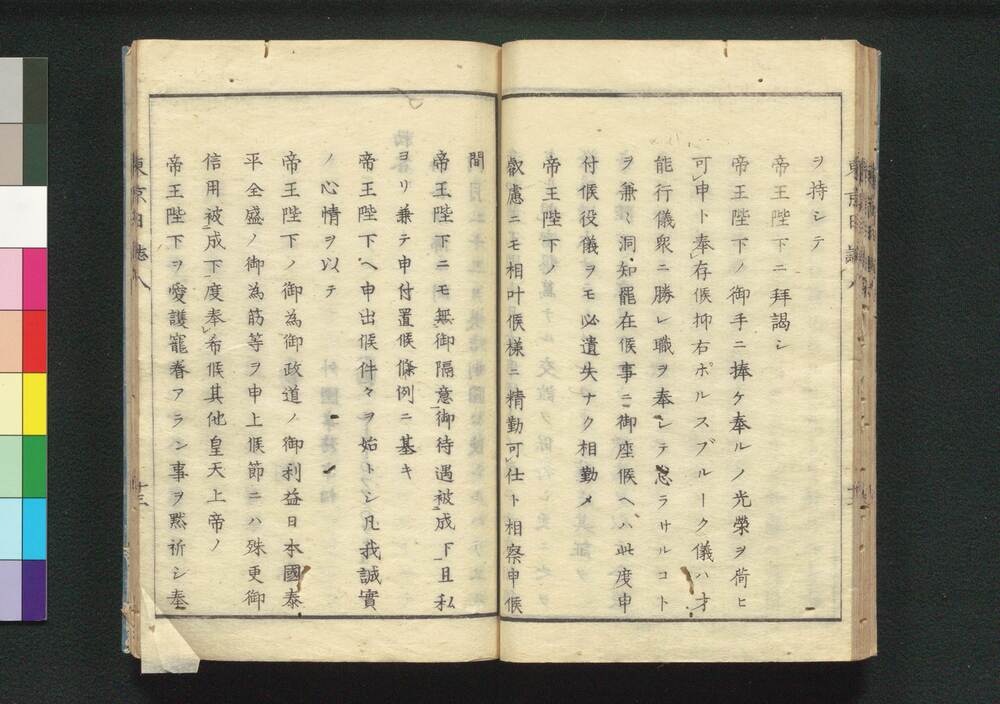 ヲ持シテ
帝王陛下ニ拜謁シ
帝王陛下ノ御手ニ捧ケ奉ルノ光榮ヲ荷ヒ
可申ト奉存候抑右ポルスブルーク儀ハ才
能行儀衆ニ勝レ職ヲ奉シテ怠ラサルコト
ヲ兼〻洞知罷在候事ニ御座候ヘハ此度申
付候役儀ヲモ必遺失ナク相勤メ
帝王陛下ノ
叡慮ニモ相叶候様ニ精勤可仕ト相察申候
間
帝王陛下ニモ無御隔意御待遇被成下且私
ヨリ兼テ申付置候條例ニ基キ
帝王陛下ヘ申出候件々ヲ始トシ凡我誠實
ノ心情ヲ以テ
帝王陛下ノ御為御政道ノ御利益日本國泰
平全盛ノ御為筋等ヲ申上候節ニハ殊更御
信用被成下度奉希候其他皇天上帝ノ
帝王陛下ヲ愛護寵眷アラン事ヲ黙祈シ奉
東京日誌八
十三